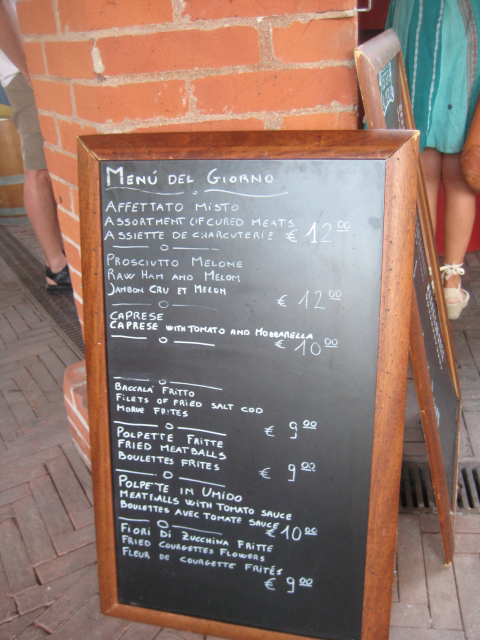 MENÚ DEL GIORNO
AFFETTATO MISTO
ASSORTMENT OF CURED MEATS
ASSIETTE DE CHARCUTERIE € 12 00
PROSCIUTTO MELONE
RAW HAM AND MELON
JAMBON CRU ET MELON
€ 12 00
CAPRESE
CAPRESE WITH TOMATO AND MOZZARELLA
€ 10 00
BACCALA' FRITTO
FILETS OF FRIED SALT COD
MORUE FRITES € 9 00
POLPETTE FRITTE
FRIED MEATBALLS
BOULETTES FRITES € 9 00
POLPETTE IN UMIDO
MEATBALLS WITH TOMATO SAUCE
BOULETTES AVEC TOMATE SAUCE € 10 00
FIORI DI ZUCCHINA FRITTE
FRIED COURGETTES FLOWERS
FLEUR DE COURGETTE FRITES
€ 9 00